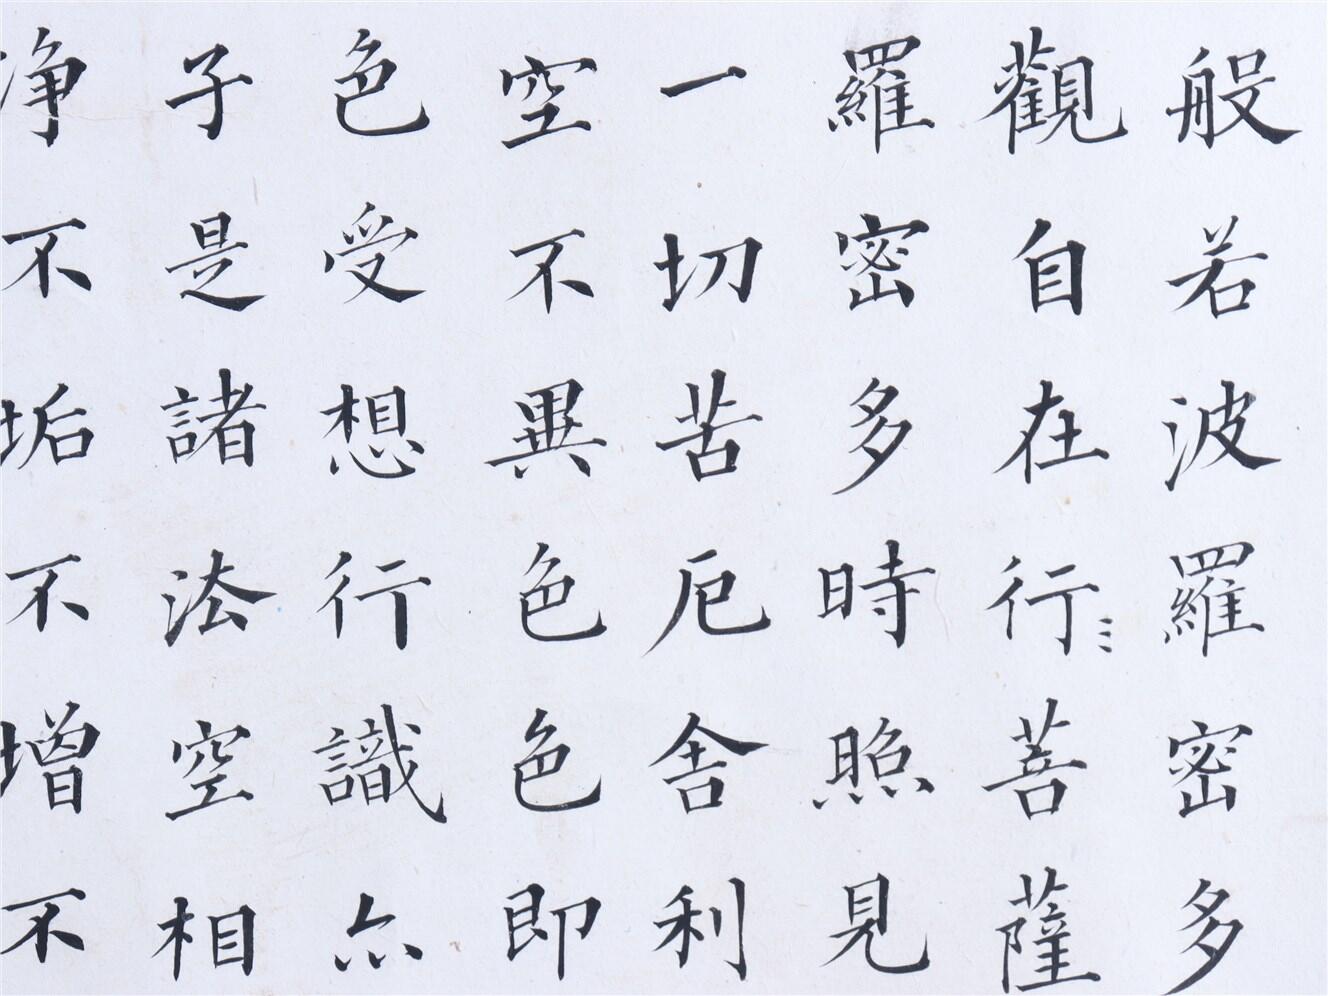 般若波羅密多
觀自在行菩薩
羅密多時照見
一切苦厄舍利
空不異色色即
色受想行識亦
子是諸法空相
净不垢不增不